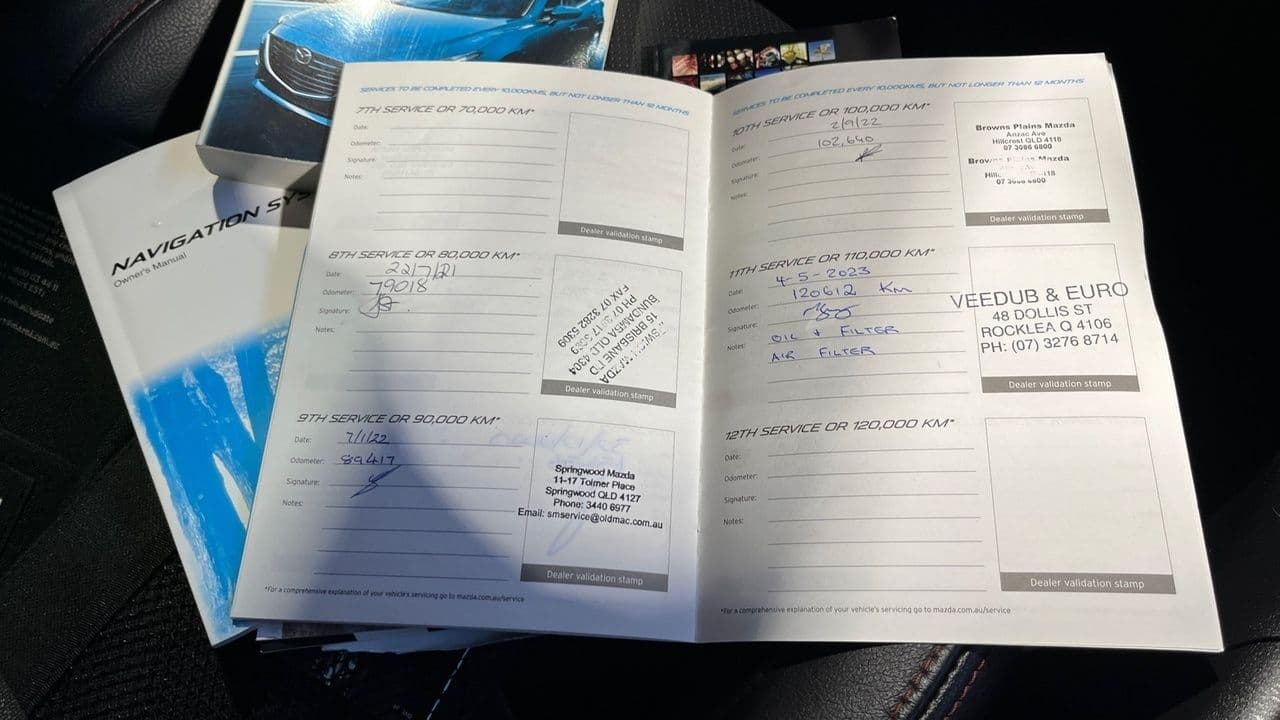 NAVIGATION SYS
Owner's Manual
SERVICES TO BE COMPLETED EVERY 10,000KMS, BUT NOT LONGER THAN 12 MONTHS
7TH SERVICE OR 70,000 KM*
Date:
Odometer:
Signature:
Notes:
Dealer validation stamp
8TH SERVICE OR 80,000 KM*
Date: 22/7/21
Odometer: 79018
Signature:
Notes:
15 BRISBANE
BUNDAMBA QLD 4304
FAX 07 3282 5309
Dealer validation stamp
9TH SERVICE OR 90,000 KM*
Date: 7/1/22
Odometer: 89417
Signature:
Notes:
Springwood Mazda
11-17 Tolmer Place
Springwood QLD 4127
Phone: 3440 6977
Email: smservice@oldmac.com.au
Dealer validation stamp
*For a comprehensive explanation of your vehicle's servicing go to mazda.com.au/service
SERVICES TO BE COMPLETED EVERY 10,000KMS, BUT NOT LONGER THAN 12 MONTHS
10TH SERVICE OR 100,000 KM*
Date: 2/9/22
Odometer: 102,640
Signature:
Notes:
Browns Plains Mazda
Anzac Ave
Hillcrest QLD 4118
07 3086 6800
Mazda
Dealer validation stamp
11TH SERVICE OR 110,000 KM*
Date: 4-5-2023
Odometer: 120612 KM
Signature:
Notes: OIL & FILTER
AIR FILTER
VEEDUB & EURO
48 DOLLIS ST
ROCKLEA Q 4106
PH: (07) 3276 8714
Dealer validation stamp
12TH SERVICE OR 120,000 KM*
Date:
Odometer:
Signature:
Notes:
Dealer validation stamp
*For a comprehensive explanation of your vehicle's servicing go to mazda.com.au/service